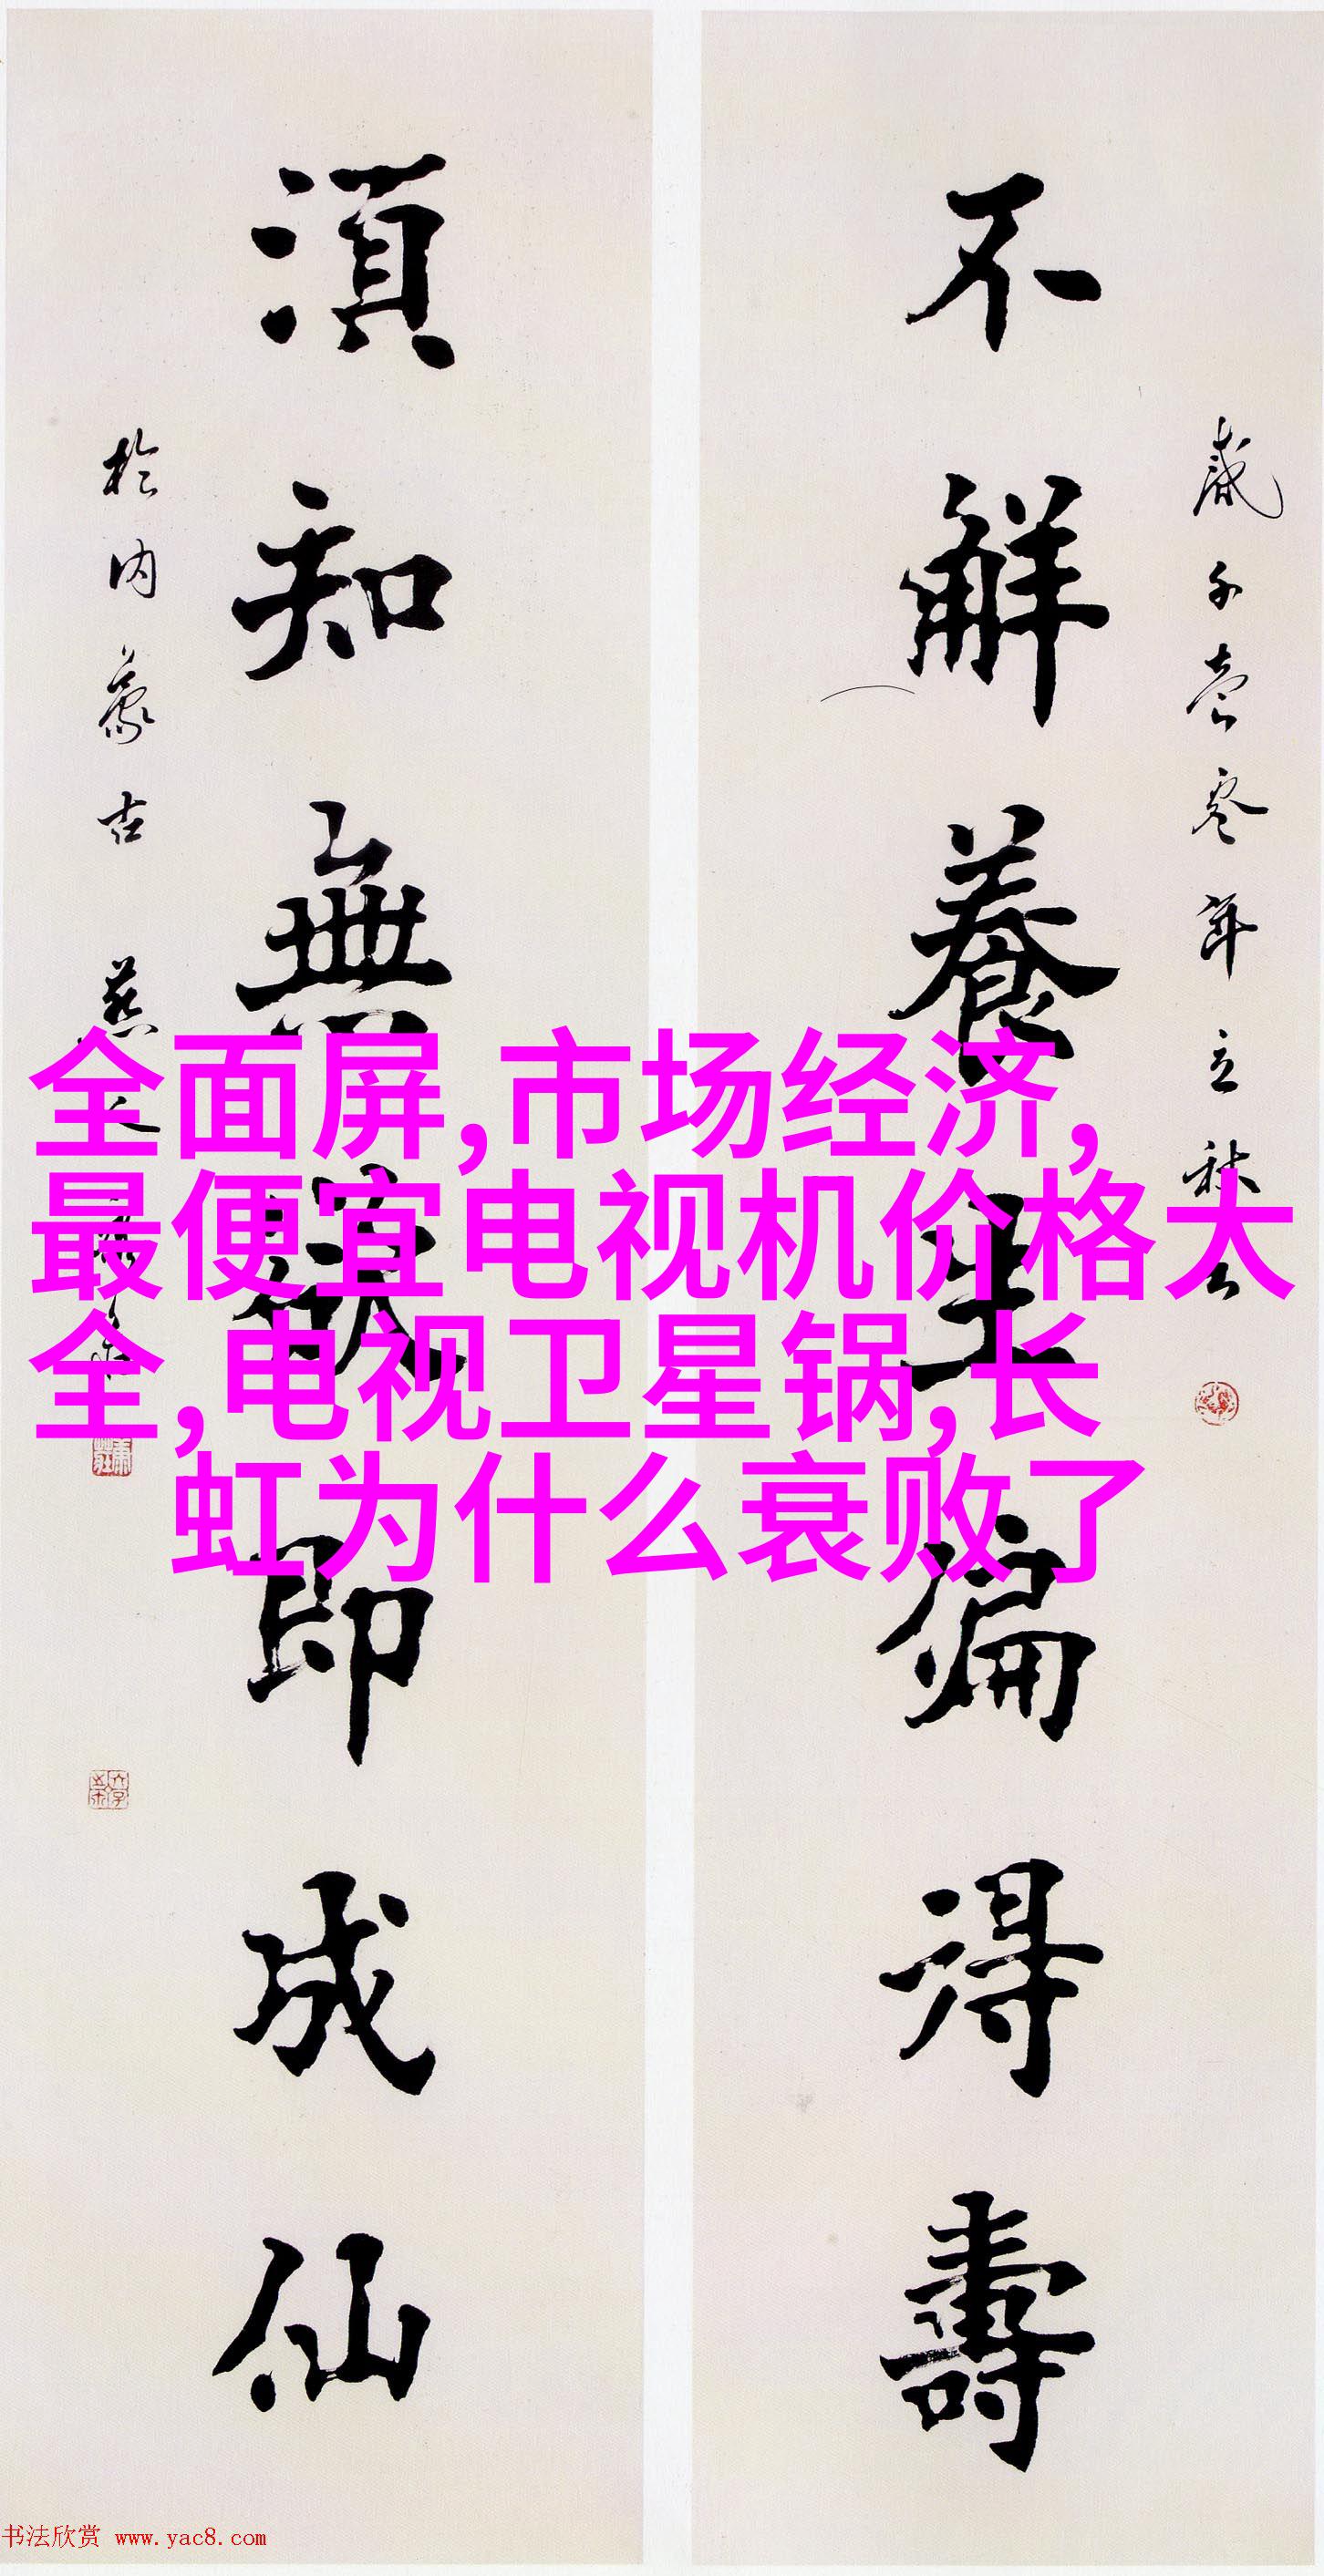 不解養生偏得壽
年立秋
湏知無即成仙
於内蒙古
全面屏,市场经济,
最便宜电视机价格大
全,电视卫星锅,长
虹为什么衰败了
书法欣赏 www.yac8.com